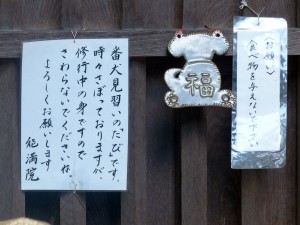 〈お願い〉
食べ物を与えないで下さい
福
番犬見習いの「たび」です。
時々さぼっておりますが、
修行中の身ですので
さわらないでくださいね。
よろしくお願いします
能満院